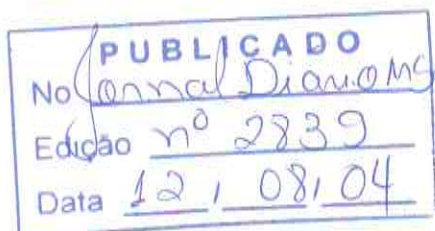 PUBLICADO
No Jornal Diario MS
Edição nº 2839
Data 12 / 08 / 04